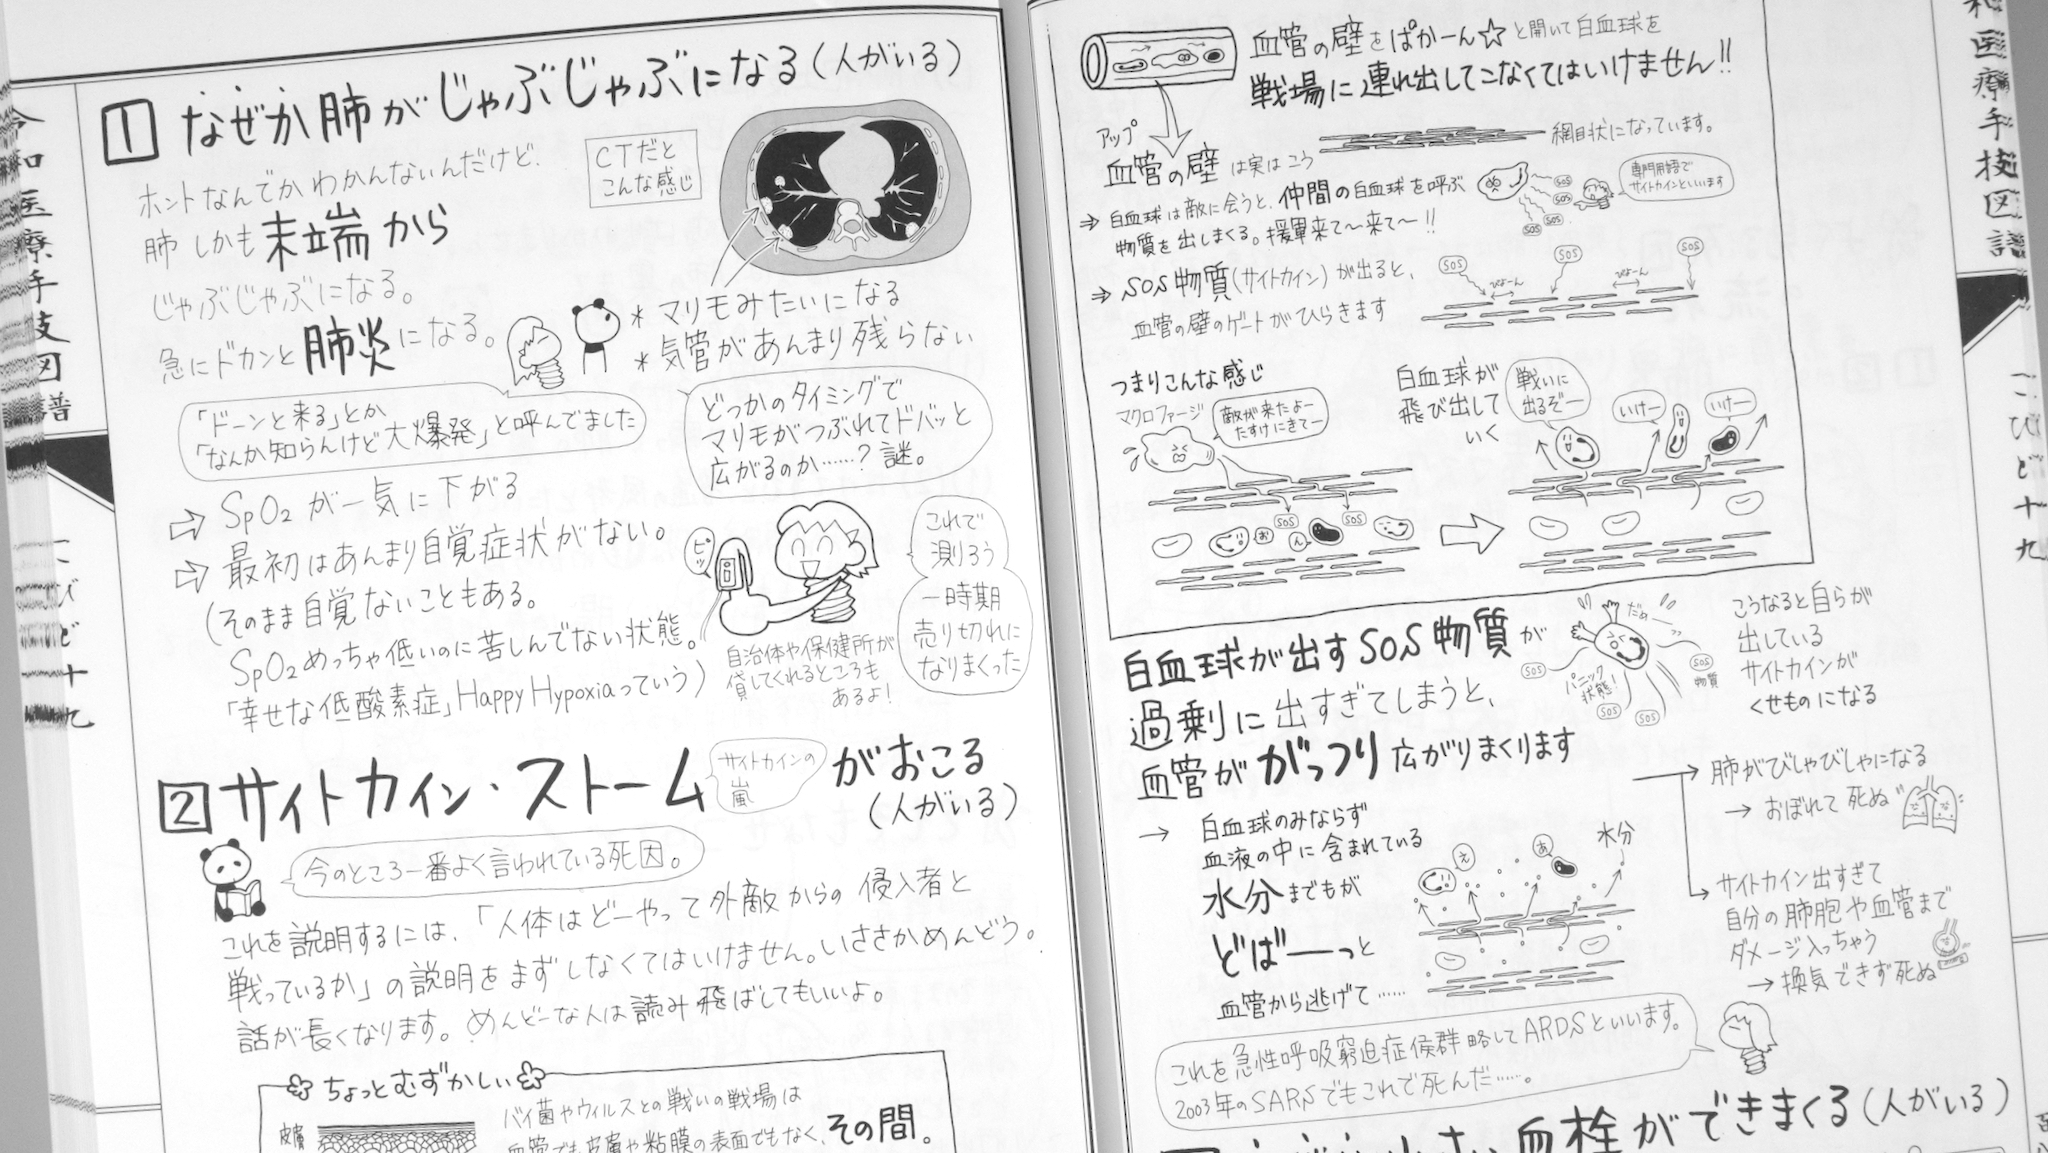 令和医療手技図譜
こびど十九
1 なぜか肺がじゃぶじゃぶになる(人がいる)
ホントなんでかわかんないんだけど、
肺しかも末端から
じゃぶじゃぶになる。
急にドカンと肺炎になる。
CTだと
こんな感じ
*マリモみたいになる
*気管があんまり残らない
「ドーンと来る」とか
「なんか知らんけど大爆発」と呼んでました
どっかのタイミングで
マリモがつぶれてドバッと
広がるのか……?謎。
⇒SpO2が一気に下がる
⇒最初はあんまり自覚症状がない。
(そのまま自覚ないこともある。
SpO2めっちゃ低いのに苦しんでない状態。
「幸せな低酸素症」Happy Hypoxiaっていう)
ピッ
これで
測ろう
一時期
売り切れに
なりまくった
自治体や保健所が
貸してくれるところも
あるよ!
2 サイトカイン・ストーム
サイトカインの
嵐
がおこる
(人がいる)
今のところ一番よく言われている死因。
これを説明するには、「人体はどーやって外敵からの侵入者と
戦っているか」の説明をまずしなくてはいけません。いささかめんどう。
話が長くなります。めんどーな人は読み飛ばしてもいいよ。
ちょっとむずかしい
皮膚
バイ菌やウィルスとの戦いの戦場は
血管でも皮膚や粘膜の表面でもなく、その間。
血管の壁をぱかーん☆と開いて白血球を
戦場に連れ出してこなくてはいけません!!
アップ
血管の壁は実はこう
網目状になっています。
⇒白血球は敵に会うと、仲間の白血球を呼ぶ
物質を出しまくる。援軍来て〜来て〜!!
SOS
SOS
SOS
SOS
専門用語で
サイトカインといいます
⇒SOS物質(サイトカイン)が出ると、
血管の壁のゲートがひらきます
SOS
SOS
SOS
びよーん
びよーん
つまりこんな感じ
マクロファージ
敵が来たよー
たすけにきてー
SOS
SOS
お
ん
白血球が
飛び出して
いく
戦いに
出るぞー
いけー
いけー
白血球が出すSOS物質が
過剰に出すぎてしまうと、
血管ががっつり広がりまくります
だぁー
パニック
状態!
SOS
SOS
物質
SOS
SOS
こうなると自らが
出している
サイトカインが
くせものになる
→白血球のみならず
血液の中に含まれている
水分までもが
どばーーっと
血管から逃げて……
え
あ
水分
→肺がびしゃびしゃになる
→おぼれて死ぬ
→サイトカイン出すぎて
自分の肺胞や血管まで
ダメージ入っちゃう
→換気できず死ぬ
これを急性呼吸窮迫症候群略してARDSといいます。
2003年のSARSでもこれで死んだ……。
血栓ができまくる(人がいる)
和医療手技図譜
こびど十九